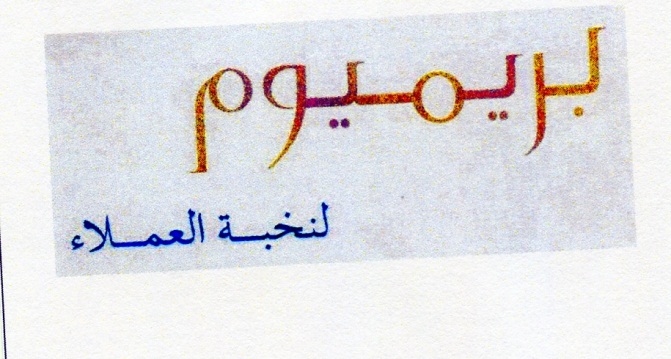 بريميوم
لنخبة العملاء